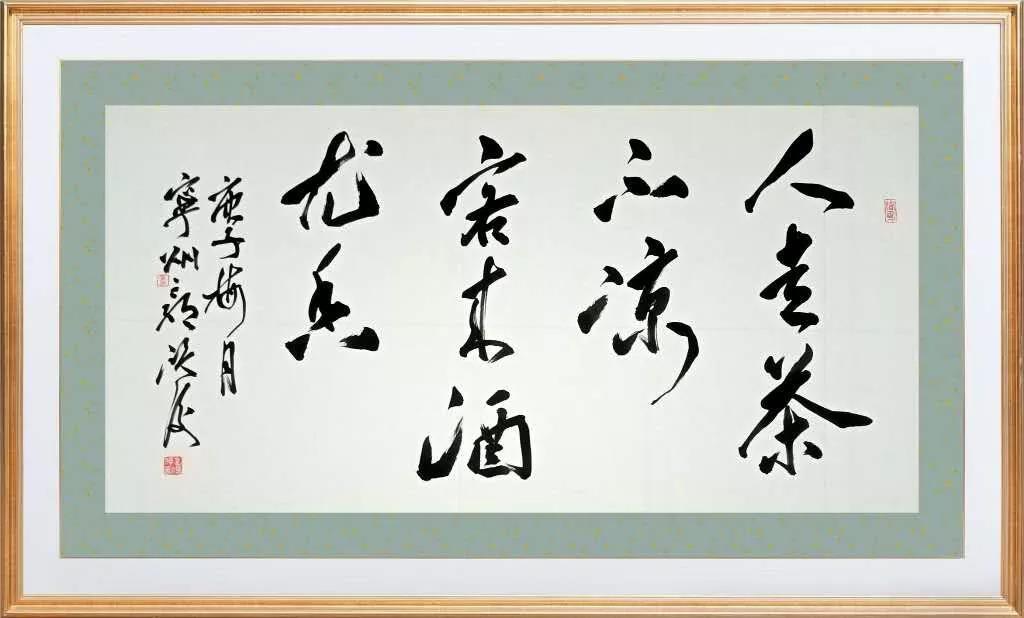 人走茶
不凉
客来酒
尤香
庚子梅月
寧州